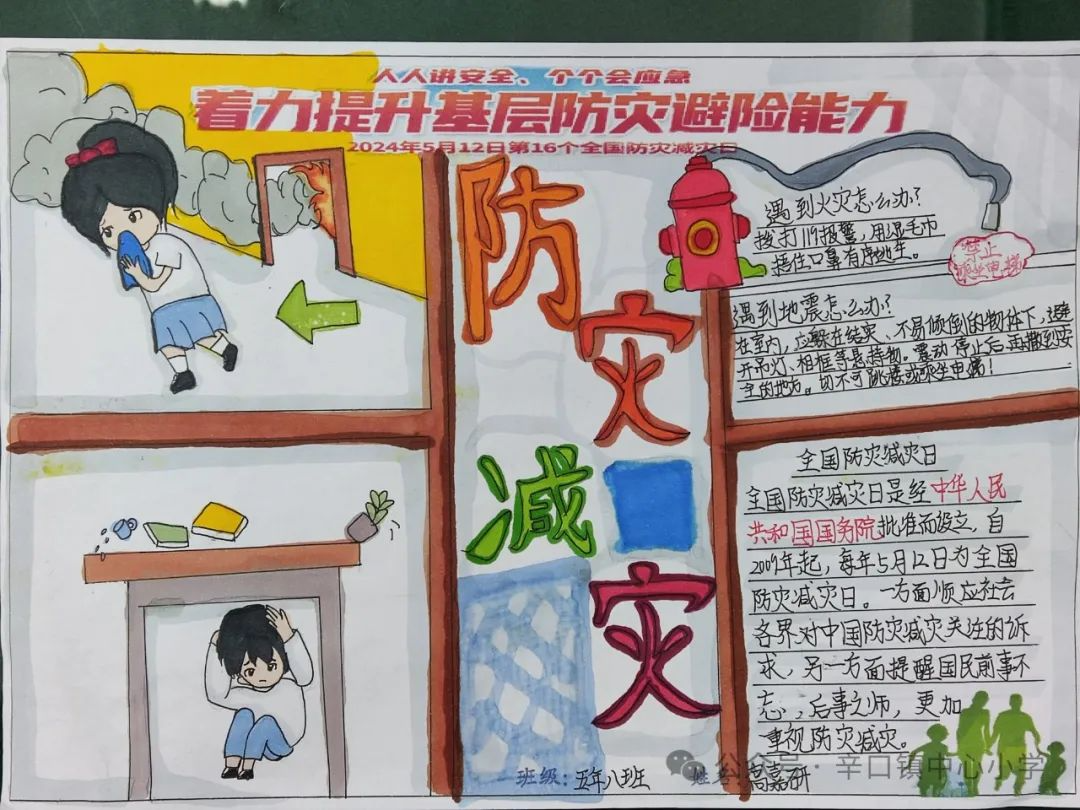 人人讲安全、个个会应急
着力提升基层防灾避险能力
2024年5月12日第16个全国防灾减灾日
防
灾
减
灾
遇到火灾怎么办?
拨打119报警,用湿毛巾
捂住口鼻有序逃生。
禁止
乘坐电梯
遇到地震怎么办?
在室内,应躲在结实、不易倾倒的物体下,避
开吊灯、相框等悬挂物。震动停止后,再撤到安
全的地方。切不可跳楼或乘坐电梯!
全国防灾减灾日
全国防灾减灾日是经中华人民
共和国国务院批准而设立,自
2009年起,每年5月12日为全国
防灾减灾日。一方面顺应社会
各界对中国防灾减灾关注的诉
求,另一方面提醒国民前事不
忘,后事之师,更加
重视防灾减灾。
班级:五年八班
姓名:
嘉研
公众号·辛口镇中心小学